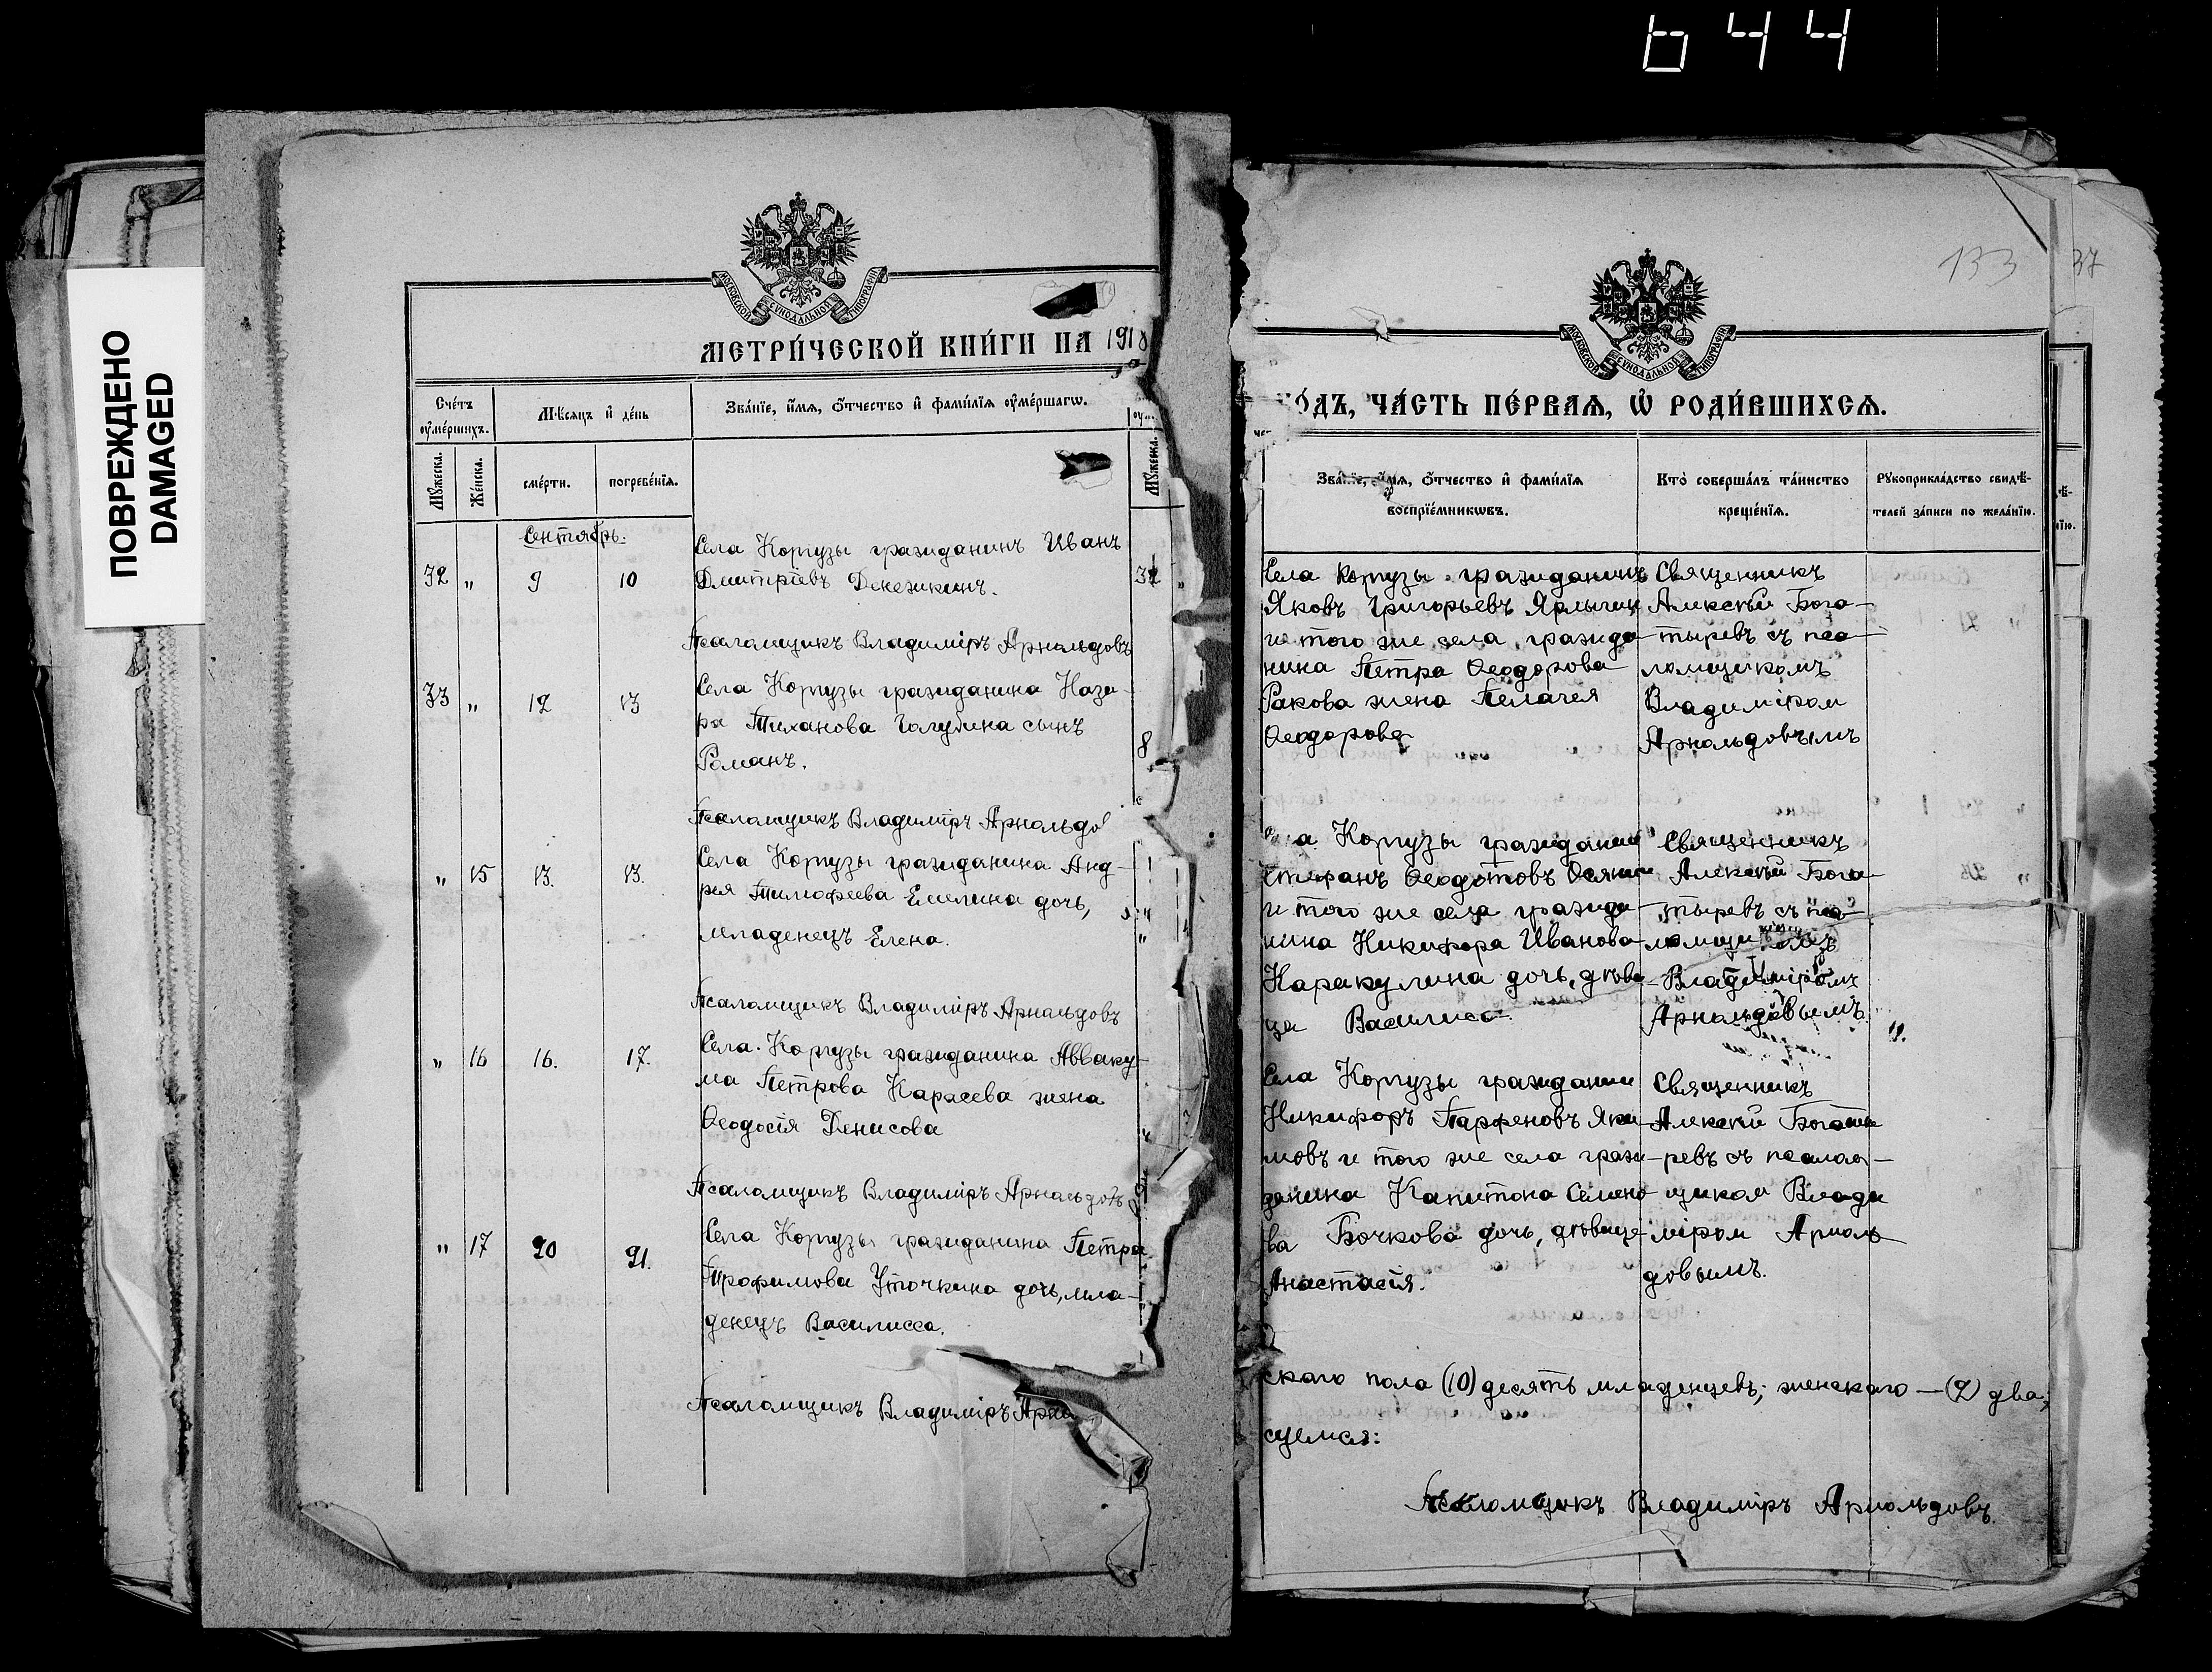 644
ПОВРЕЖДЕНО
DAMAGED
МОСКОВСКОЙ СѴНОДАЛЬНОЙ ТИПОГРАФІИ
МЕТРИ́ЧЕСКОЙ КНИ́ГИ НА 1918
Сче́тъ
оумершихъ.
Мѣсяцъ и де́нь
Зва́нїе, и́мя, о́тчество и фами́лїя оуме́ршагѡ.
Мꙋжеска.
Же́нска.
сме́рти.
погребе́нїя.
Мꙋжеска.
Сентябрь.
32 " 9 10
Села Коргузы гражданинъ Иванъ
Дмитріевъ Денежкинъ.
32 "
Псаломщикъ Владиміръ Арнольдовъ
33 " 12 13
Села Коргузы гражданина Наза-
ра Тиханова Голубина сынъ
Романъ.
8
Псаломщикъ Владиміръ Арнольдо
" 15 13. 13.
Села Коргузы гражданина Анд-
рея Тимофеева Емелина дочь,
младенецъ Елена.
Псаломщикъ Владиміръ Арнольдовъ
" 16 16. 17.
Села Коргузы гражданина Авваку-
ма Петрова Карасева жена
Ѳеодосія Денисова
Псаломщикъ Владиміръ Арнольдовъ
" 17 20 21.
Села Коргузы гражданина Петра
Трофимова Уточкина дочь, мла-
денецъ Василисса.
Псаломщикъ Владиміръ Арно
133
37
МОСКОВСКОЙ СѴНОДАЛЬНОЙ ТИПОГРАФІИ
ГО́ДЪ, ЧА́СТЬ ПЕ́РВАЯ, Ѡ РОДИ́ВШИХСЯ.
Зва́нїе, и́мя, о́тчество и фами́лїя
воспрїе́мникѡвъ.
Кто̀ соверша́лъ та́инство
креще́нїя.
Рꙋкоприкла́дство свидѣ-
телей за́писи по жела́нїю.
Села Коргузы гражданинъ
Яковъ Григорьевъ Ярлыгин
и того же села гражда
нина Петра Ѳеодорова
Ракова жена Пелагея
Ѳеодорова
Священникъ
Алексѣй Бога-
тыревъ съ пса-
ломщикомъ
Владиміром
Арнольдовымъ
а Коргузы граждании
Стефанъ Ѳеодотовъ
и того же села гражда
нина Никифора Иванова
Каракулина дочь, дѣви
ца Василиса
Священникъ
Алексѣй Бога-
тыревъ съ пса-
ломщикомъ
Владиміромъ
Арнольдовымъ
Села Коргузы граждании
Никифоръ Парфеновъ Яки
мовъ и того же села граж
данина Капитона Семено
ва Бочкова дочь, дѣвица
Анастасія.
Священникъ
Алексѣй Богаты
ревъ съ псалом-
щиком Влади
міром Арноль
довымъ.
скаго пола (10) десять младенцевъ; женскаго — (2) два,
суемся:
Псаломщикъ Владиміръ Арнольдовъ.